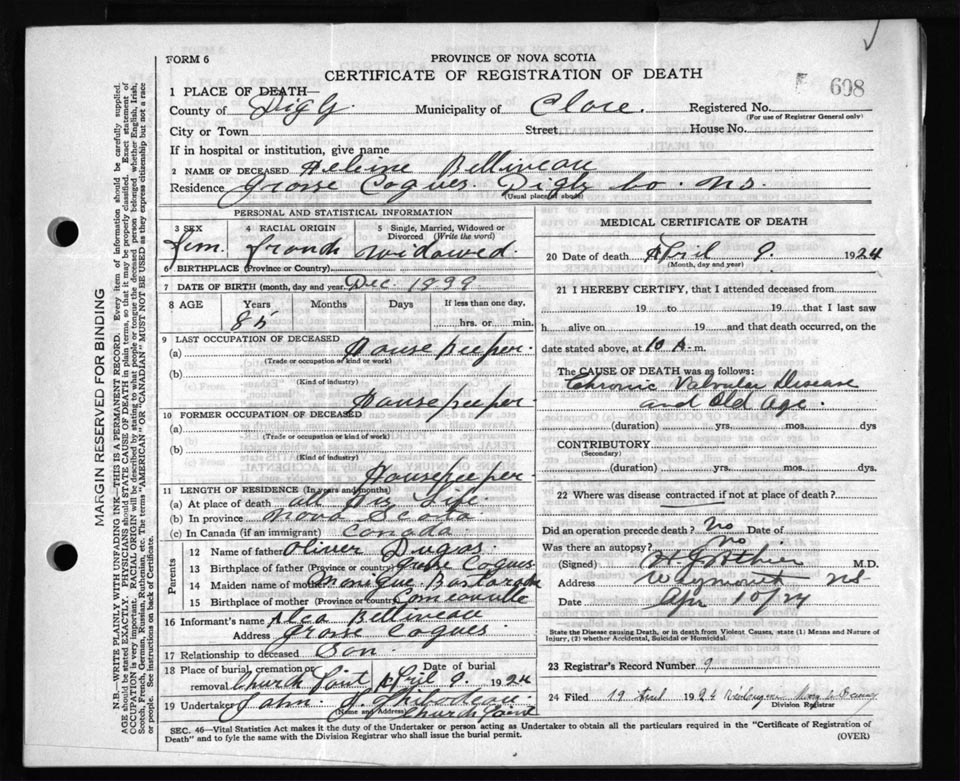 FORM 6
PROVINCE OF NOVA SCOTIA
CERTIFICATE OF REGISTRATION OF DEATH
F 698
1 PLACE OF DEATH—
County of Digby Municipality of Clare. Registered No.
(For use of Registrar General only)
City or Town Street House No.
If in hospital or institution, give name
2 NAME OF DECEASED Helene Belliveau
Residence Grosse Coques. Digby Co. N.S.
(Usual place of abode)
PERSONAL AND STATISTICAL INFORMATION
3 SEX 4 RACIAL ORIGIN 5 Single, Married, Widowed or Divorced (Write the word)
Fem. french widowed.
6 BIRTHPLACE (Province or Country)
7 DATE OF BIRTH (month, day and year) Dec. 1899
8 AGE Years Months Days If less than one day,
85 hrs. or min.
9 LAST OCCUPATION OF DECEASED
(a) Housekeeper.
(Trade or occupation or kind of work)
(b)
(Kind of industry)
Housekeeper.
10 FORMER OCCUPATION OF DECEASED
(a)
(Trade or occupation or kind of work)
(b)
(Kind of industry)
Housekeeper.
11 LENGTH OF RESIDENCE (In years and months)
(a) At place of death all her life
(b) In province Nova Scotia
(c) In Canada (if an immigrant) Canada
Parents
12 Name of father Oliver Dugas.
13 Birthplace of father (Province or country) Grosse Coques
14 Maiden name of mother Monique
15 Birthplace of mother (Province or country) Comeauville
16 Informant's name Belliveau
Address Grosse Coques.
17 Relationship to deceased Son.
18 Place of burial, cremation or removal Church Point Date of burial April 9. 1924
19 Undertaker John J. Thibodeau
(Name and Address) Church Point
MEDICAL CERTIFICATE OF DEATH
20 Date of death April 9. 1924
(Month, day and year)
21 I HEREBY CERTIFY, that I attended deceased from
19 to 19 that I last saw
h alive on 19 and that death occurred, on
date stated above, at 10 A. m.
The CAUSE OF DEATH was as follows:
Chronic Valvular Disease
and Old Age.
(duration) yrs. mos. dys
CONTRIBUTORY
(Secondary)
(duration) yrs. mos. dys.
22 Where was disease contracted if not at place of death?
Did an operation precede death? No Date of
Was there an autopsy? No
(Signed) M.D.
Address Weymouth NS.
Date Apr 10/24
State the Disease causing Death, or in death from Violent Causes, state (1) Means and Nature of Injury, (2) whether Accidental, Suicidal or Homicidal.
23 Registrar's Record Number 9
24 Filed 19 1924
Division Registrar
SEC. 46—Vital Statistics Act makes it the duty of the Undertaker or person acting as Undertaker to obtain all the particulars required in the "Certificate of Registration of
Death" and to fyle the same with the Division Registrar who shall issue the burial permit. (OVER)
MARGIN RESERVED FOR BINDING
N.B.—WRITE PLAINLY WITH UNFADING INK—THIS IS A PERMANENT RECORD. Every item of information should be carefully supplied.
AGE should be stated EXACTLY. PHYSICIANS should STATE CAUSE OF DEATH in plain terms, so that it may be properly classified. Exact statement of
OCCUPATION is very important. RACIAL ORIGIN will be described by stating to what people or tongue the deceased person belonged whether English, Irish,
Scotch, French, German, Russian, Ruthenian, etc. The terms "AMERICAN" OR "CANADIAN" MUST NOT BE USED as they express citizenship but not a race
or people. See instructions on back of Certificate.